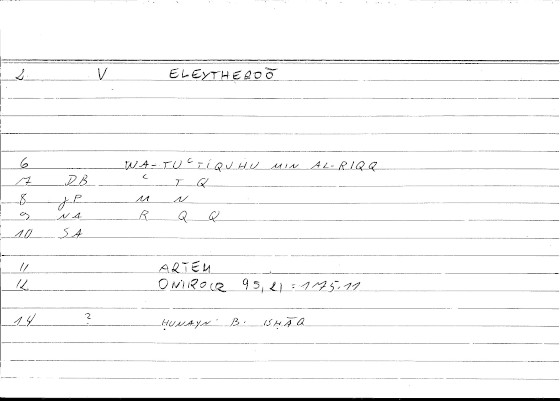 2 V ELEYTHEROŌ
6 WA-TUʿTIQUHU MIN AL-RIQQ
7 DB ʿ T Q
8 gP M N
9 NA R Q Q
10 SA
11 ARTEM
12 ONIROCR 95,21 = 175.11
14 ? ḤUNAYN B. ISḤĀQ